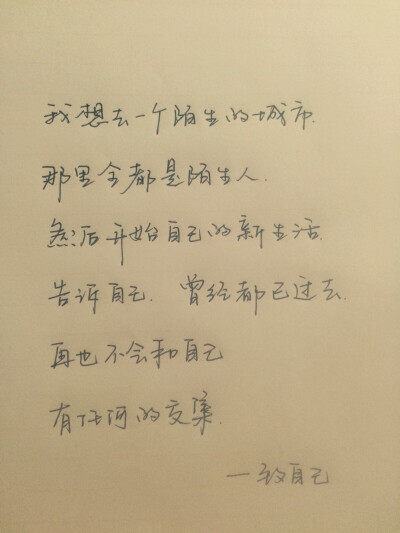 我想去一个陌生的城市.
那里全都是陌生人.
然后开始自己的新生活.
告诉自己. 曾经都已过去.
再也不会和自己
有任何的交集.
—致自己